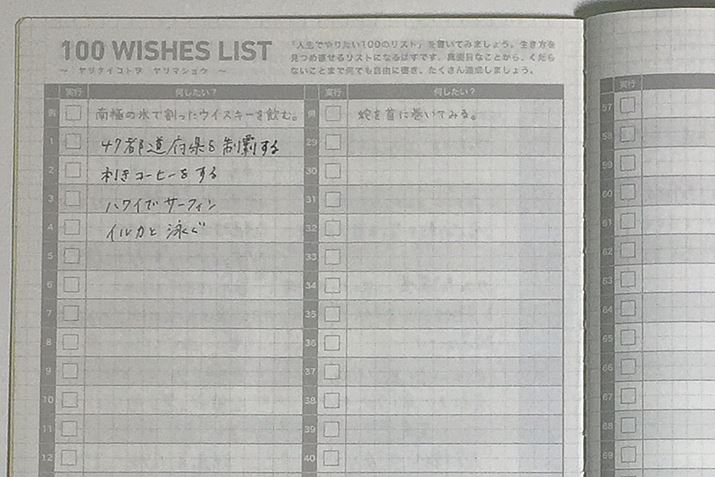 100 WISHES LIST
～ ヤリタイコトヲ ヤリマショウ ～
「人生でやりたい100のリスト」を書いてみましょう。生き方を
見つめ直せるリストになるはずです。真面目なことから、くだら
ないことまで何でも自由に書き、たくさん達成しましょう。
実行 何したい？
例 南極の氷で割ったウイスキーを飲む。
1 47都道府県を制覇する
2 利きコーヒーをする
3 ハワイでサーフィン
4 イルカと泳ぐ
5
6
7
8
9
10
11
12
実行 何したい？
例 蛇を首に巻いてみる。
29
30
31
32
33
34
35
36
37
38
39
40
実行
57
58
59
60
61
62
63
64
65
66
67
68
69